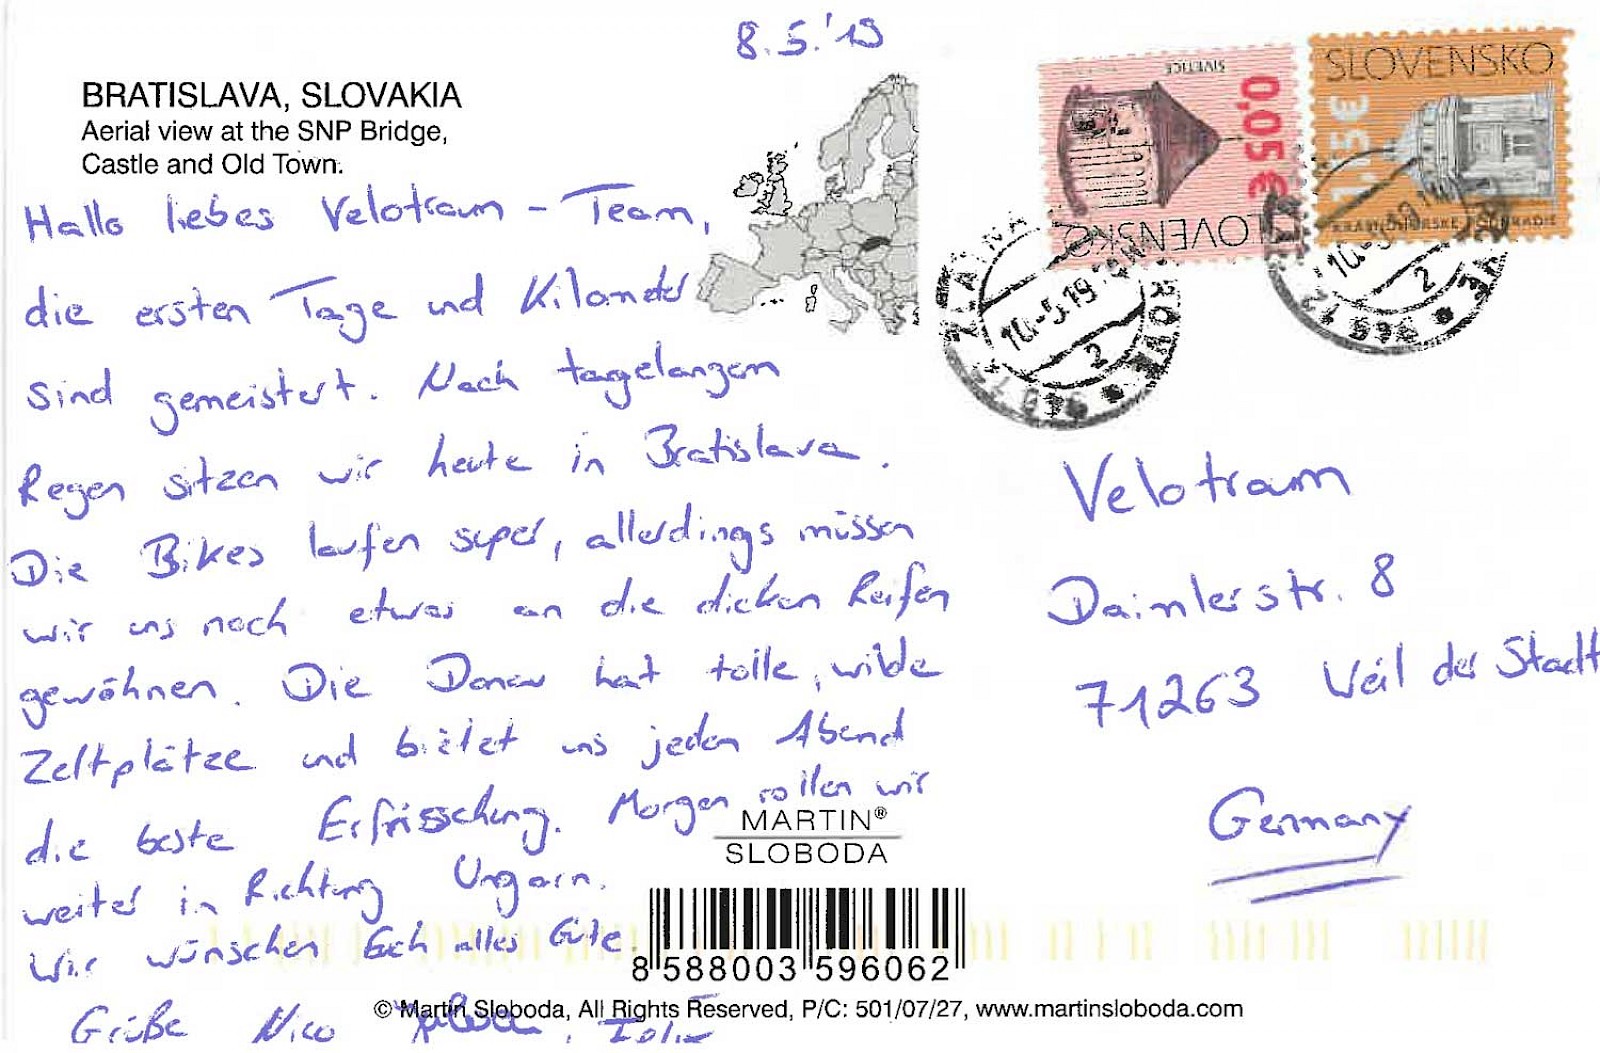 8.5.'19
BRATISLAVA, SLOVAKIA
Aerial view at the SNP Bridge,
Castle and Old Town.
Hallo liebes Velotraum - Team,
die ersten Tage und Kilometer
sind gemeistert. Nach tagelangem
Regen sitzen wir heute in Bratislava.
Die Bikes laufen super, allerdings müssen
wir uns noch etwas an die dicken Reifen
gewöhnen. Die Donau hat tolle, wilde
Zeltplätze und bietet uns jeden Abend
die beste Erfrisschung. Morgen rollen wir
weiter in Richtung Ungarn.
Wir wünschen Euch alles Gute.
Grüße Nico
SIVETICE
0,50€
SLOVENSKO
SLOVENSKO
KRASNOHORSKÉ PODHRADIE
10.-5.19
2
2
Velotraum
Daimlerstr. 8
71263 Weil der Stadt
Germany
MARTIN®
SLOBODA
8 588003 596062
© Martin Sloboda, All Rights Reserved, P/C: 501/07/27, www.martinsloboda.com